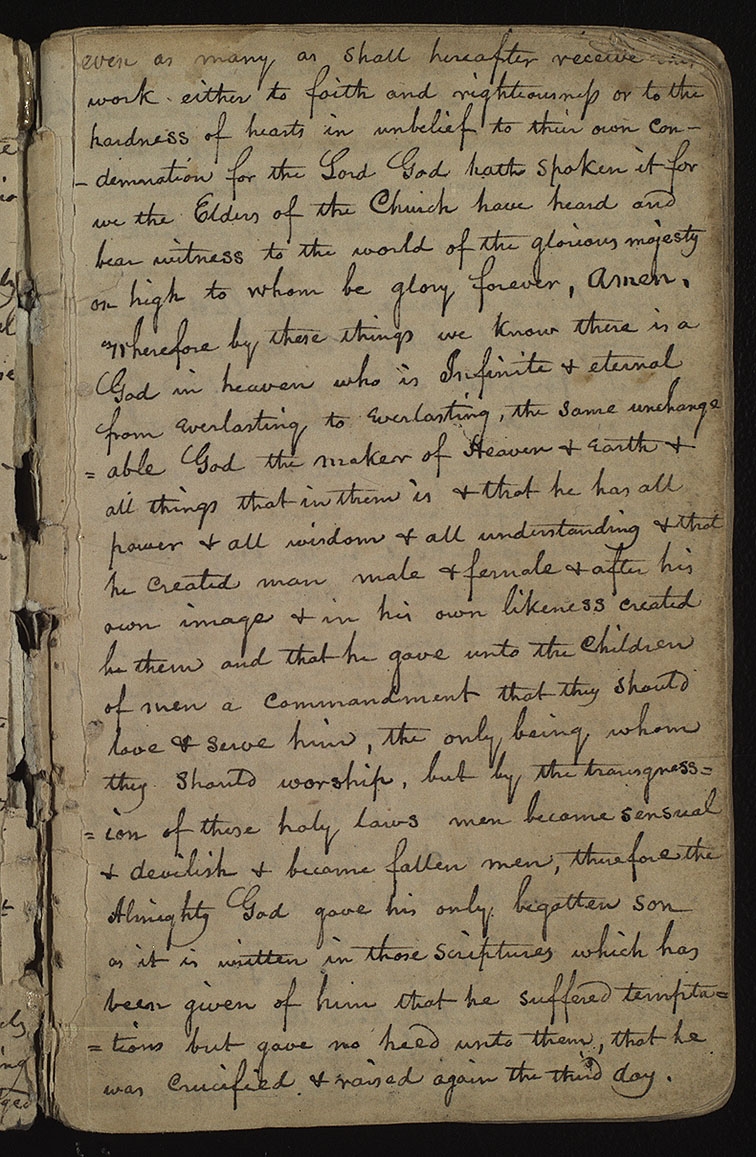 even as many as shall hereafter receive this
work either to faith and righteousness or to the
hardness of hearts in unbelief to their own con-
-demnation for the Lord God hath spoken it for
we the Elders of the Church have heard and
bear witness to the world of the glorious majesty
on high to whom be glory forever, Amen.
Wherefore by these things we know there is a
God in heaven who is Infinite & eternal
from everlasting to Everlasting, the same unchange
=able God the maker of Heaven & Earth &
all things that in them is & that he has all
power & all wisdom & all understanding & that
he created man male & female & after his
own image & in his own likeness created
he them and that he gave unto the Children
of men a commandment that they should
love & serve him, the only being whom
they should worship, but by the transgress=
=ion of those holy laws men became sensual
& devilish & became fallen men, therefore the
Almighty God gave his only begotten son
as it is written in those scriptures which has
been given of him that he suffered tempta=
=tions but gave no heed unto them, that he
was crucified & raised again the third day.